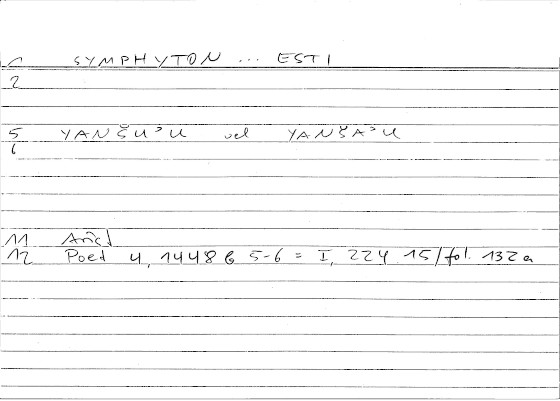 1 SYMPHYTON ... ESTI
2
5 YANŠU'U vel YANŠA'U
6
11 Arist
12 Poet 4, 1448 b 5-6 = I, 224 15/fol. 132a